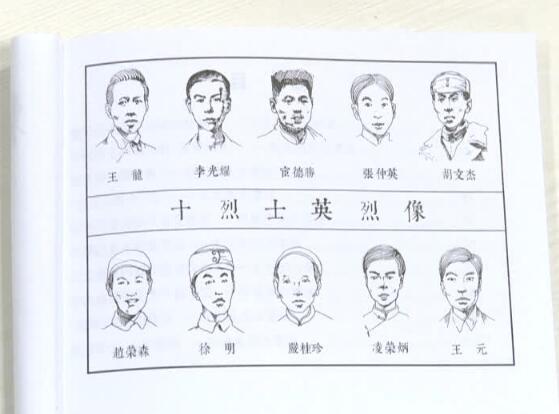 王龍 李光燿 宦德勝 張仲英 胡文杰
十烈士英烈像
趙荣森 徐明 嚴桂珍 凌荣炳 王元